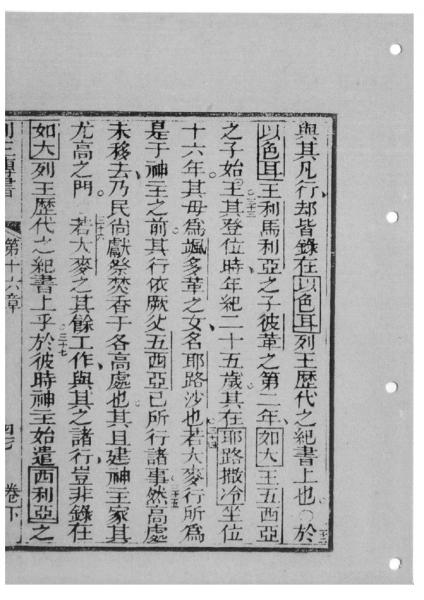 與其凡行却皆錄在以色耳列王歷代之紀書上也○於
以色耳王利馬利亞之子彼革之第二年如大王五西亞
之子始王其登位時年紀二十五歲其在耶路撒冷坐位
十六年其母爲颯多革之女名耶路沙也若大麥行所爲
是于神主之前其行依厥父五西亞已所行諸事然高處
未移去乃民尚獻祭焚香于各高處也其且建神主家其
尤高之門 若大麥之其餘工作與其之諸行豈非錄在
如大列王歷代之紀書上乎於彼時神主始遣西利亞之
列王傳書 第十六章 卷下